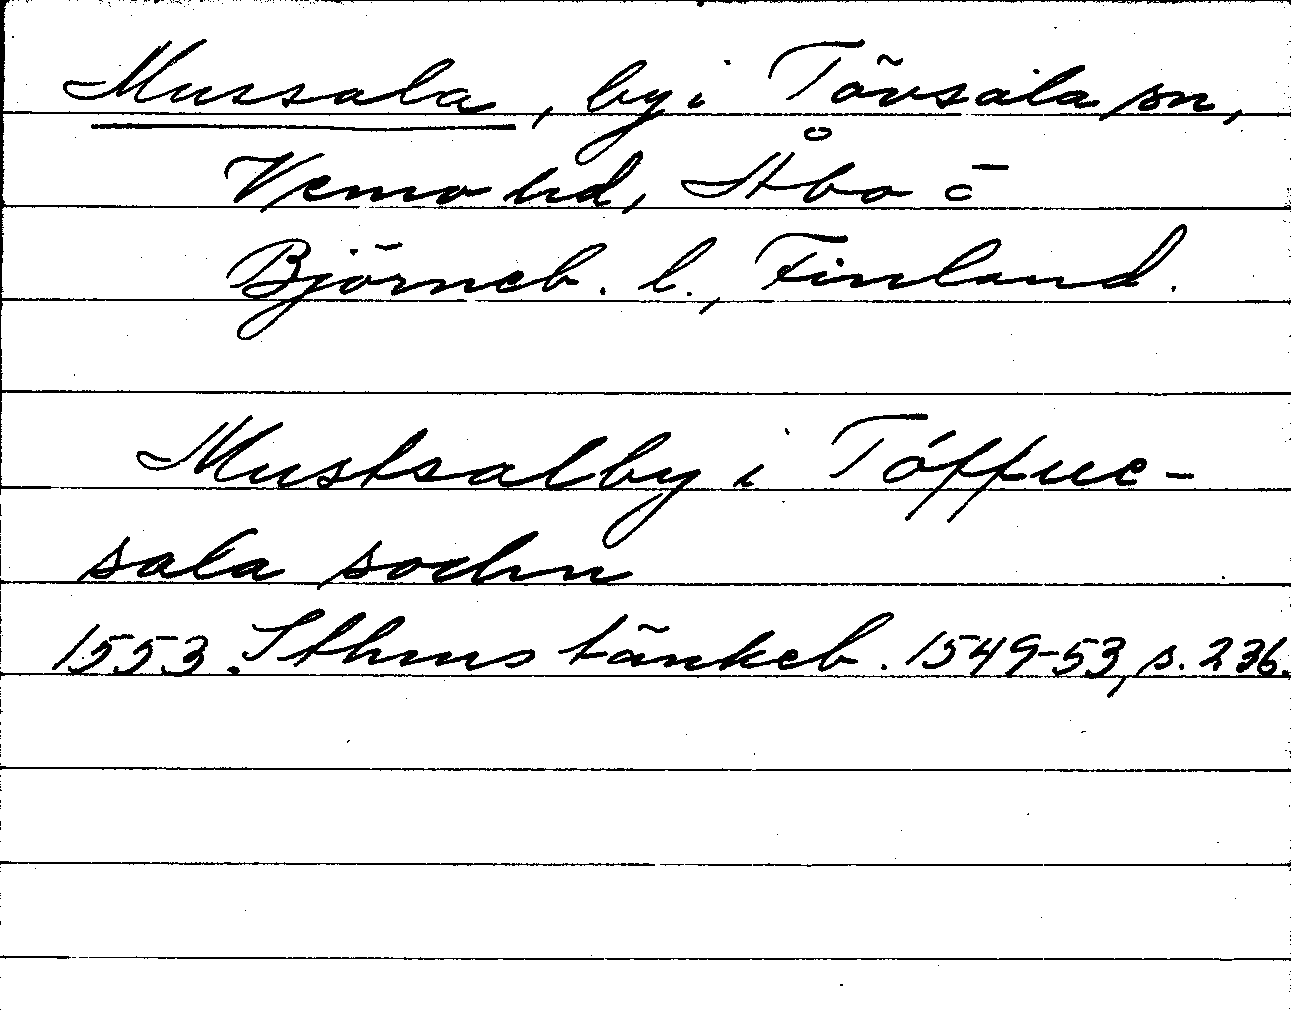 Mussala, by i Tövsala sn,
Vemo hd, Åbo o
Björneb. l., Finland.
Mustsalby i Tóffue-
sala sochn
1553. Sthms tänkeb. 1549-53, s. 236.